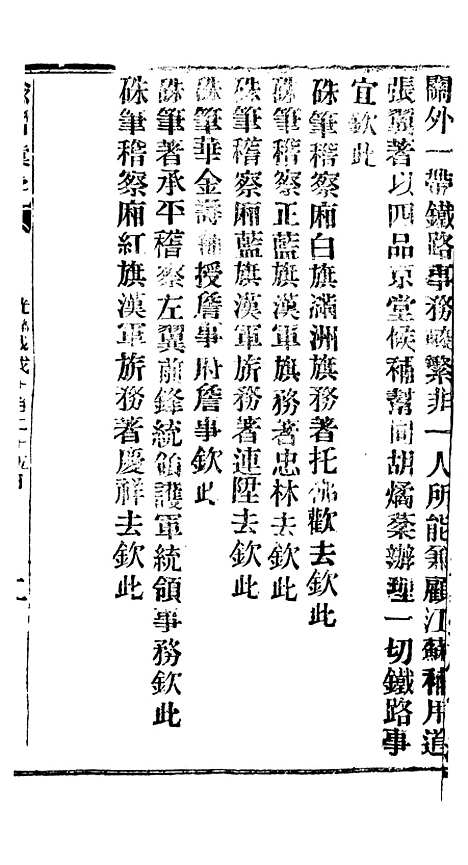 關外一帶鐵路事務殷繁非一人所能兼顧江蘇補用道
張翼著以四品京堂候補幫同胡燏棻辦理一切鐵路事
宜欽此
硃筆稽察廂白旗滿洲旗務著托佛歡去欽此
硃筆稽察正藍旗漢軍旗務著忠林去欽此
硃筆稽察廂藍旗漢軍旗務著連陞去欽此
硃筆華金壽補授詹事府詹事欽此
硃筆著承平稽察左翼前鋒統領護軍統領事務欽此
硃筆稽察廂紅旗漢軍旗務著慶祥去欽此
光緒戊戌十月二十五日